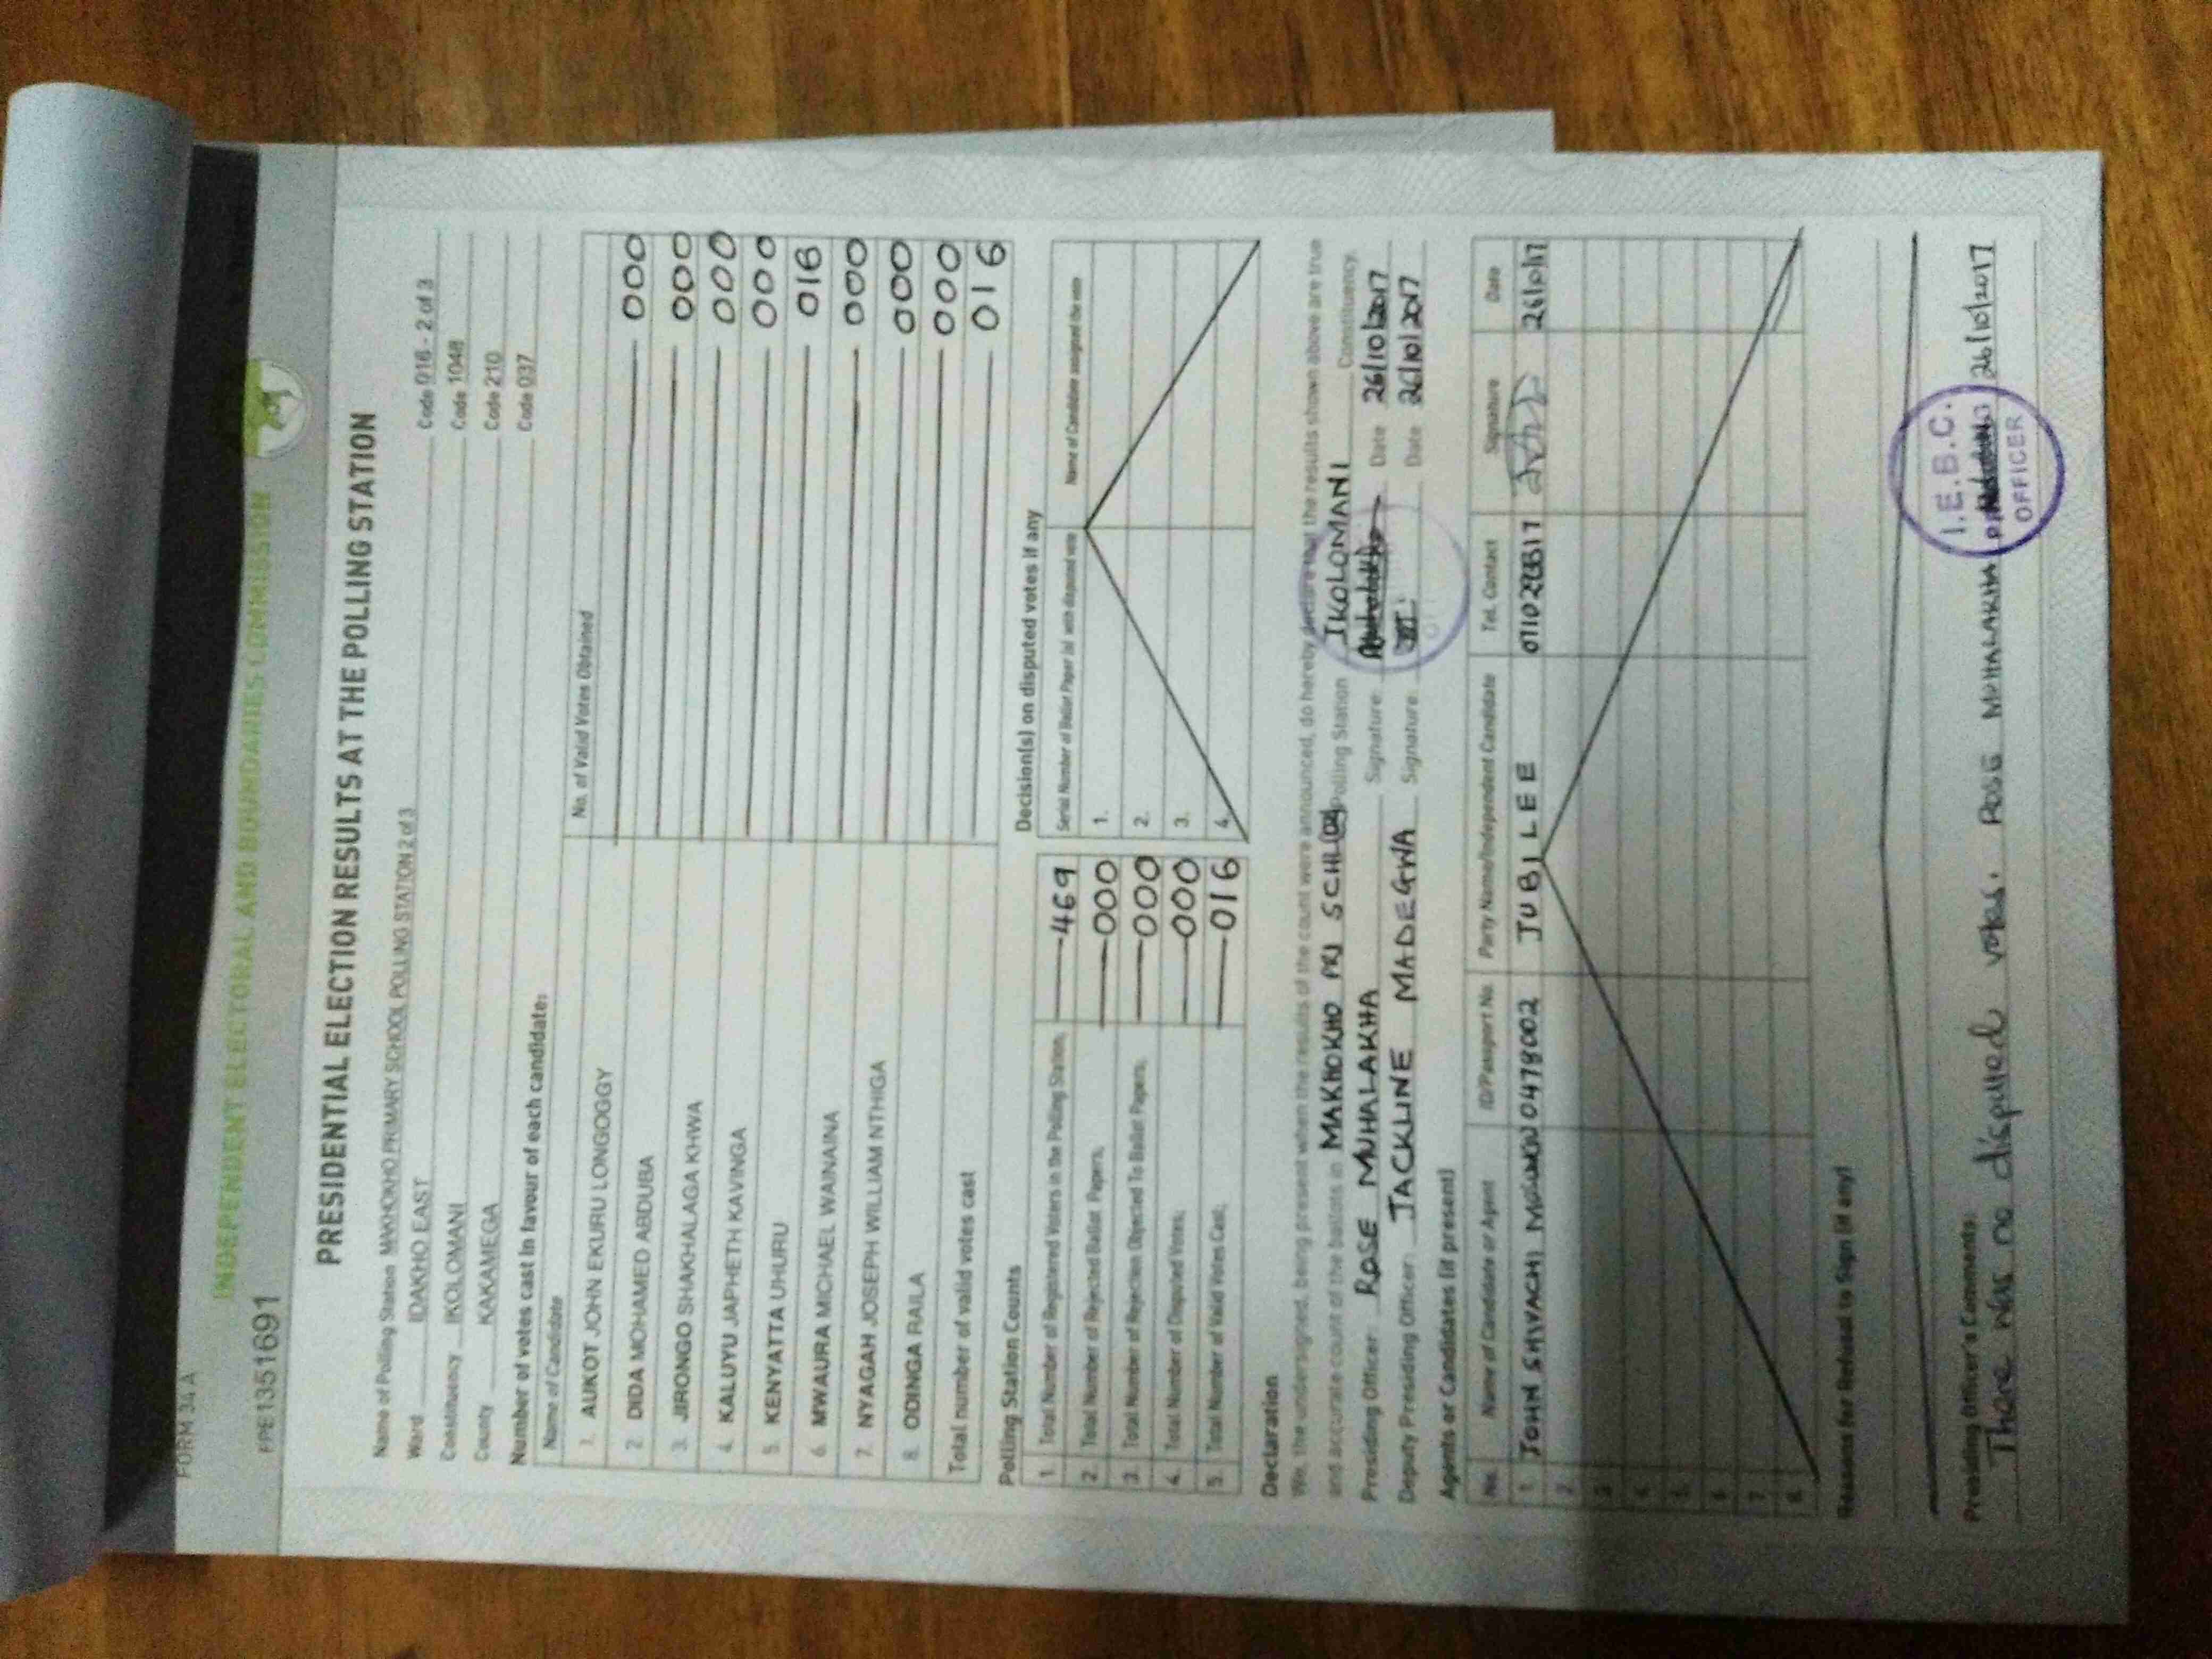 FORM 34 A
INDEPENDENT ELECTORAL AND BOUNDARIES COMMISSION
FPE1351691
PRESIDENTIAL ELECTION RESULTS AT THE POLLING STATION
Name of Polling Station MAKHOKHO PRIMARY SCHOOL POLLING STATION 2 of 3 Code 016 - 2 of 3
Ward IDAKHO EAST Code 1048
Constituency IKOLOMANI Code 210
County KAKAMEGA Code 037
Number of votes cast in favour of each candidate:
Name of Candidate No. of Valid Votes Obtained
1. AUKOT JOHN EKURU LONGOGGY 000
2. DIDA MOHAMED ABDUBA 000
3. JIRONGO SHAKHALAGA KHWA 000
4. KALUYU JAPHETH KAVINGA 000
5. KENYATTA UHURU 016
6. MWAURA MICHAEL WAINAINA 000
7. NYAGAH JOSEPH WILLIAM NTHIGA 000
8. ODINGA RAILA 000
Total number of valid votes cast 016
Polling Station Counts
1. Total Number of Registered Voters in the Polling Station; 469
2. Total Number of Rejected Ballot Papers; 000
3. Total Number of Rejection Objected To Ballot Papers; 000
4. Total Number of Disputed Votes; 000
5. Total Number of Valid Votes Cast; 016
Decision(s) on disputed votes if any
Serial Number of Ballot Paper (s) with disputed vote Name of Candidate assigned the vote
1.
2.
3.
4.
Declaration
We, the undersigned, being present when the results of the count were announced, do hereby declare that the results shown above are true
and accurate count of the ballots in MAKHOKHO PRI SCHL Polling Station IKOLOMANI Constituency.
Presiding Officer: ROSE MUHALAKHA Signature Date 26/10/2017
Deputy Presiding Officer: JACKLINE MADEGWA Signature Date 26/10/2017
Agents or Candidates (if present)
No. Name of Candidate or Agent ID/Passport No. Party Name/Independent Candidate Tel. Contact Signature Date
1. JOHN SHIVACHI 0478002 JUBILEE 26/10/17
2.
3.
4.
5.
6.
7.
8.
Reasons for Refusal to Sign (if any)
Presiding Officer's Comments:
There was no disputed votes. ROSE MUHALAKHA 26/10/2017
I.E.B.C.
OFFICER